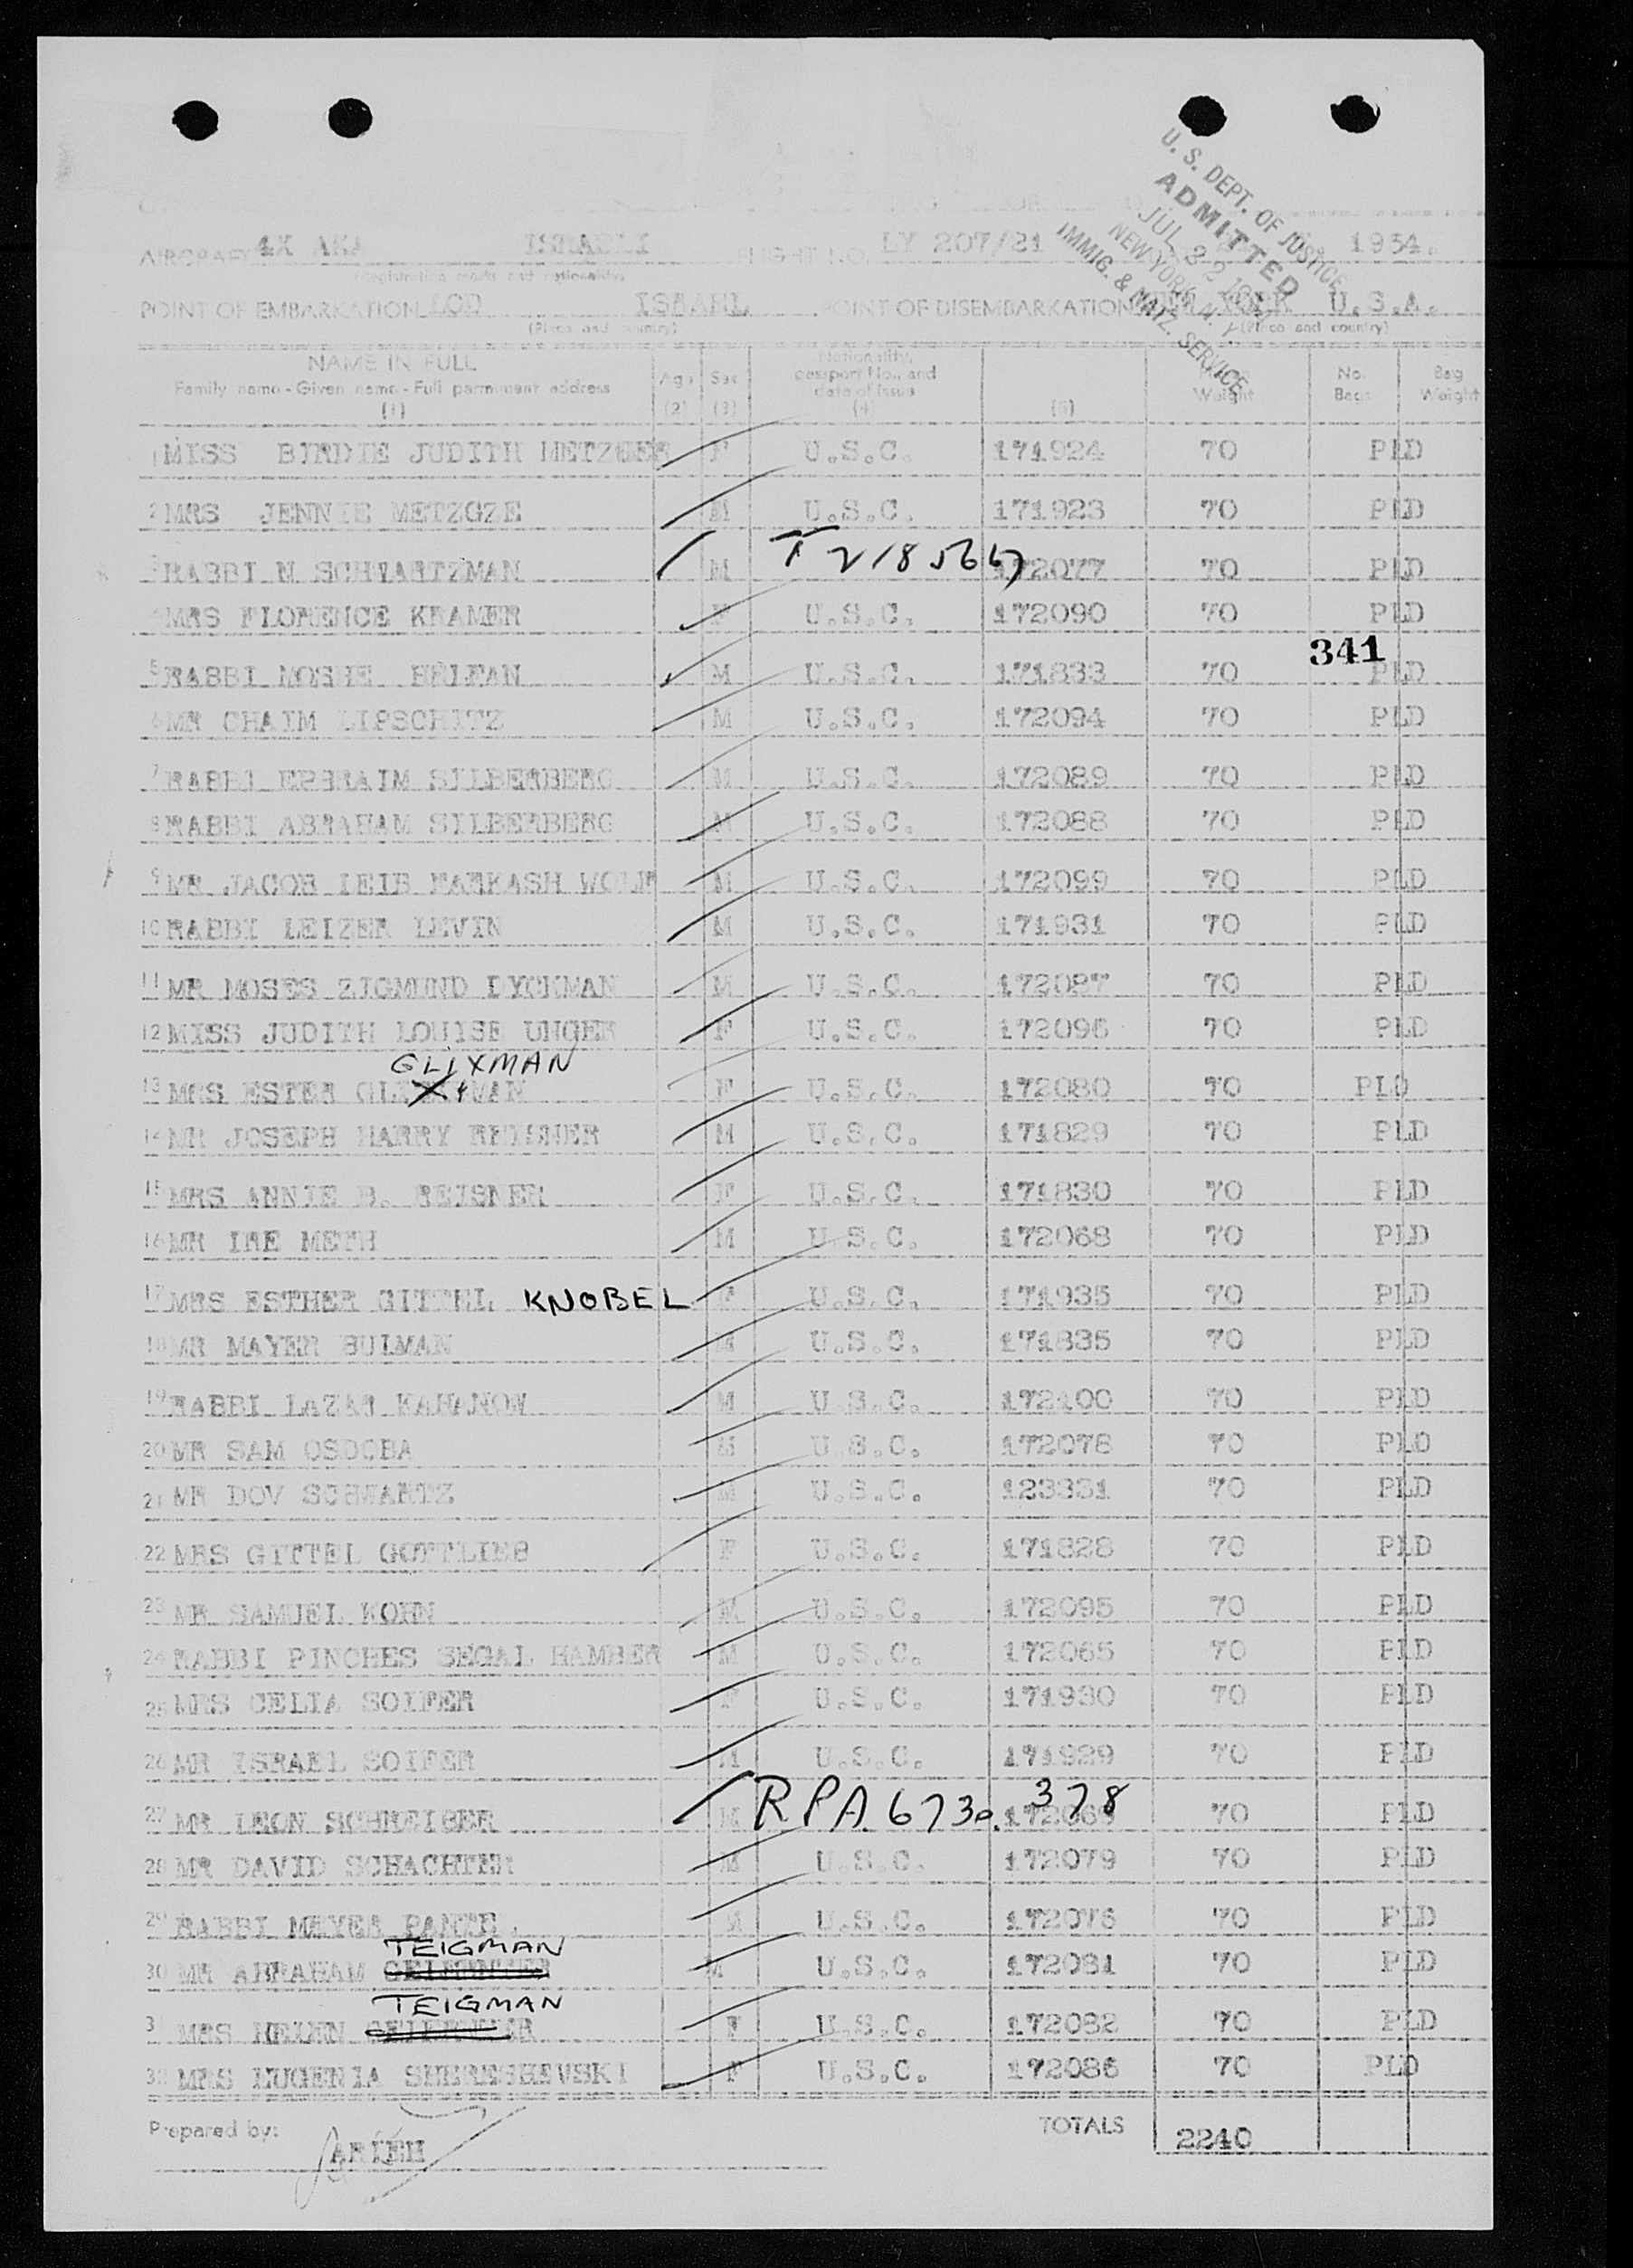 U. S. DEPT. OF JUSTICE
ADMITTED
JUL 22 1954
NEW YORK, N. Y.
IMMIG. & NATZ. SERVICE
AIRCRAFT 4X AKA ISRAELI FLIGHT NO. LY 207/21 1954.
(Registration marks and nationality)
POINT OF EMBARKATION LOD ISRAEL POINT OF DISEMBARKATION YORK U.S.A.
(Place and country) (Place and country)
NAME IN FULL
Family name - Given name - Full permanent address
(1)
Age
(2)
Sex
(3)
Nationality,
passport No., and
date of issue
(4)
(5)
Weight
No.
Bags
Bag
Weight
1 MISS BIRDIE JUDITH METZGER F U.S.C. 171924 70 PLD
2 MRS JENNIE METZGZE M U.S.C. 171923 70 PLD
3 RABBI M SCHWARTZMAN M 172077 70 PLD
4 MRS FLORENCE KRAMER F U.S.C. 172090 70 PLD
341
5 RABBI MOSHE M U.S.C. 171833 70 PLD
6 MR CHAIM LIPSCHITZ M U.S.C. 172094 70 PLD
7 RABBI EPHRAIM SILBERBERG M U.S.C. 172089 70 PLD
8 RABBI ABRAHAM SILBERBERG M U.S.C. 172088 70 PLD
9 MR JACOB LEIB FARKASH WOLF M U.S.C. 172099 70 PLD
10 RABBI LEIZER LEVIN M U.S.C. 171931 70 PLD
11 MR MOSES ZIGMUND DYCKMAN M U.S.C. 172097 70 PLD
12 MISS JUDITH LOUISE UNGER F U.S.C. 172096 70 PLD
GLIXMAN
13 MRS ESTER F U.S.C. 172080 70 PLD
14 MR JOSEPH HARRY REISNER M U.S.C. 171829 70 PLD
15 MRS ANNIE B. REISNER F U.S.C. 171830 70 PLD
16 MR IRE METH M U.S.C. 172068 70 PLD
17 MRS ESTHER GITTEL KNOBEL F U.S.C. 171935 70 PLD
18 MR MAYER BULMAN M U.S.C. 171835 70 PLD
19 RABBI LAZAR KAHANOW M U.S.C. 172100 70 PLD
20 MR SAM OSDOBA M U.S.C. 172078 70 PLD
21 MR DOV SCHWARTZ M U.S.C. 123331 70 PLD
22 MRS GITTEL GOTTLIEB F U.S.C. 171828 70 PLD
23 MR SAMUEL KOHN M U.S.C. 172095 70 PLD
24 RABBI PINCHES SEGAL HAMBER M U.S.C. 172065 70 PLD
25 MRS CELIA SOIFER F U.S.C. 171930 70 PLD
26 MR ISRAEL SOIFER M U.S.C. 171929 70 PLD
27 MR LEON SCHREIBER M RPA 6730. 378 70 PLD
28 MR DAVID SCHACHTER M U.S.C. 172079 70 PLD
29 RABBI MEYER M U.S.C. 172076 70 PLD
TEIGMAN
30 MR ABRAHAM M U.S.C. 172081 70 PLD
TEIGMAN
31 MRS HELEN F U.S.C. 172082 70 PLD
32 MRS EUGENIA SHERESHEVSKI F U.S.C. 172086 70 PLD
Prepared by: ARIEH TOTALS 2240